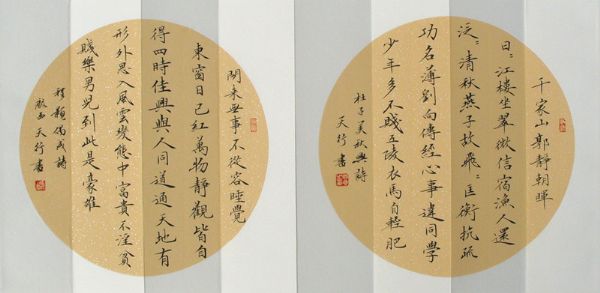 千家山郭靜朝暉
日〻江樓坐翠微信宿漁人還
泛〻清秋燕子故飛〻匡衡抗疏
功名薄劉向傳經心事違同學
少年多不賤五陵衣馬自輕肥
杜子美秋興詩
天行書
閒來無事不從容睡覺
東窗日已紅萬物靜觀皆自
得四時佳興與人同道通天地有
形外思入風雲變態中富貴不淫貧
賤樂男兒到此是豪雄
程顥偶成詩
天行書